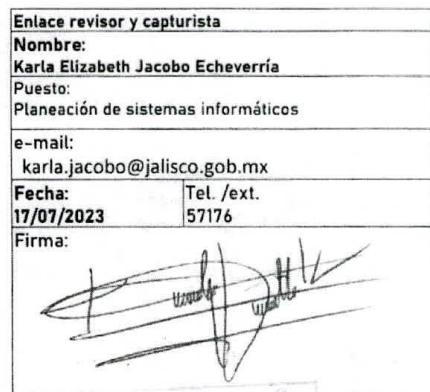 Enlace revisor y capturista
Nombre:
Karla Elizabeth Jacobo Echeverría
Puesto:
Planeación de sistemas informáticos
e-mail:
karla.jacobo@jalisco.gob.mx
Fecha:
17/07/2023
Tel. /ext.
57176
Firma: